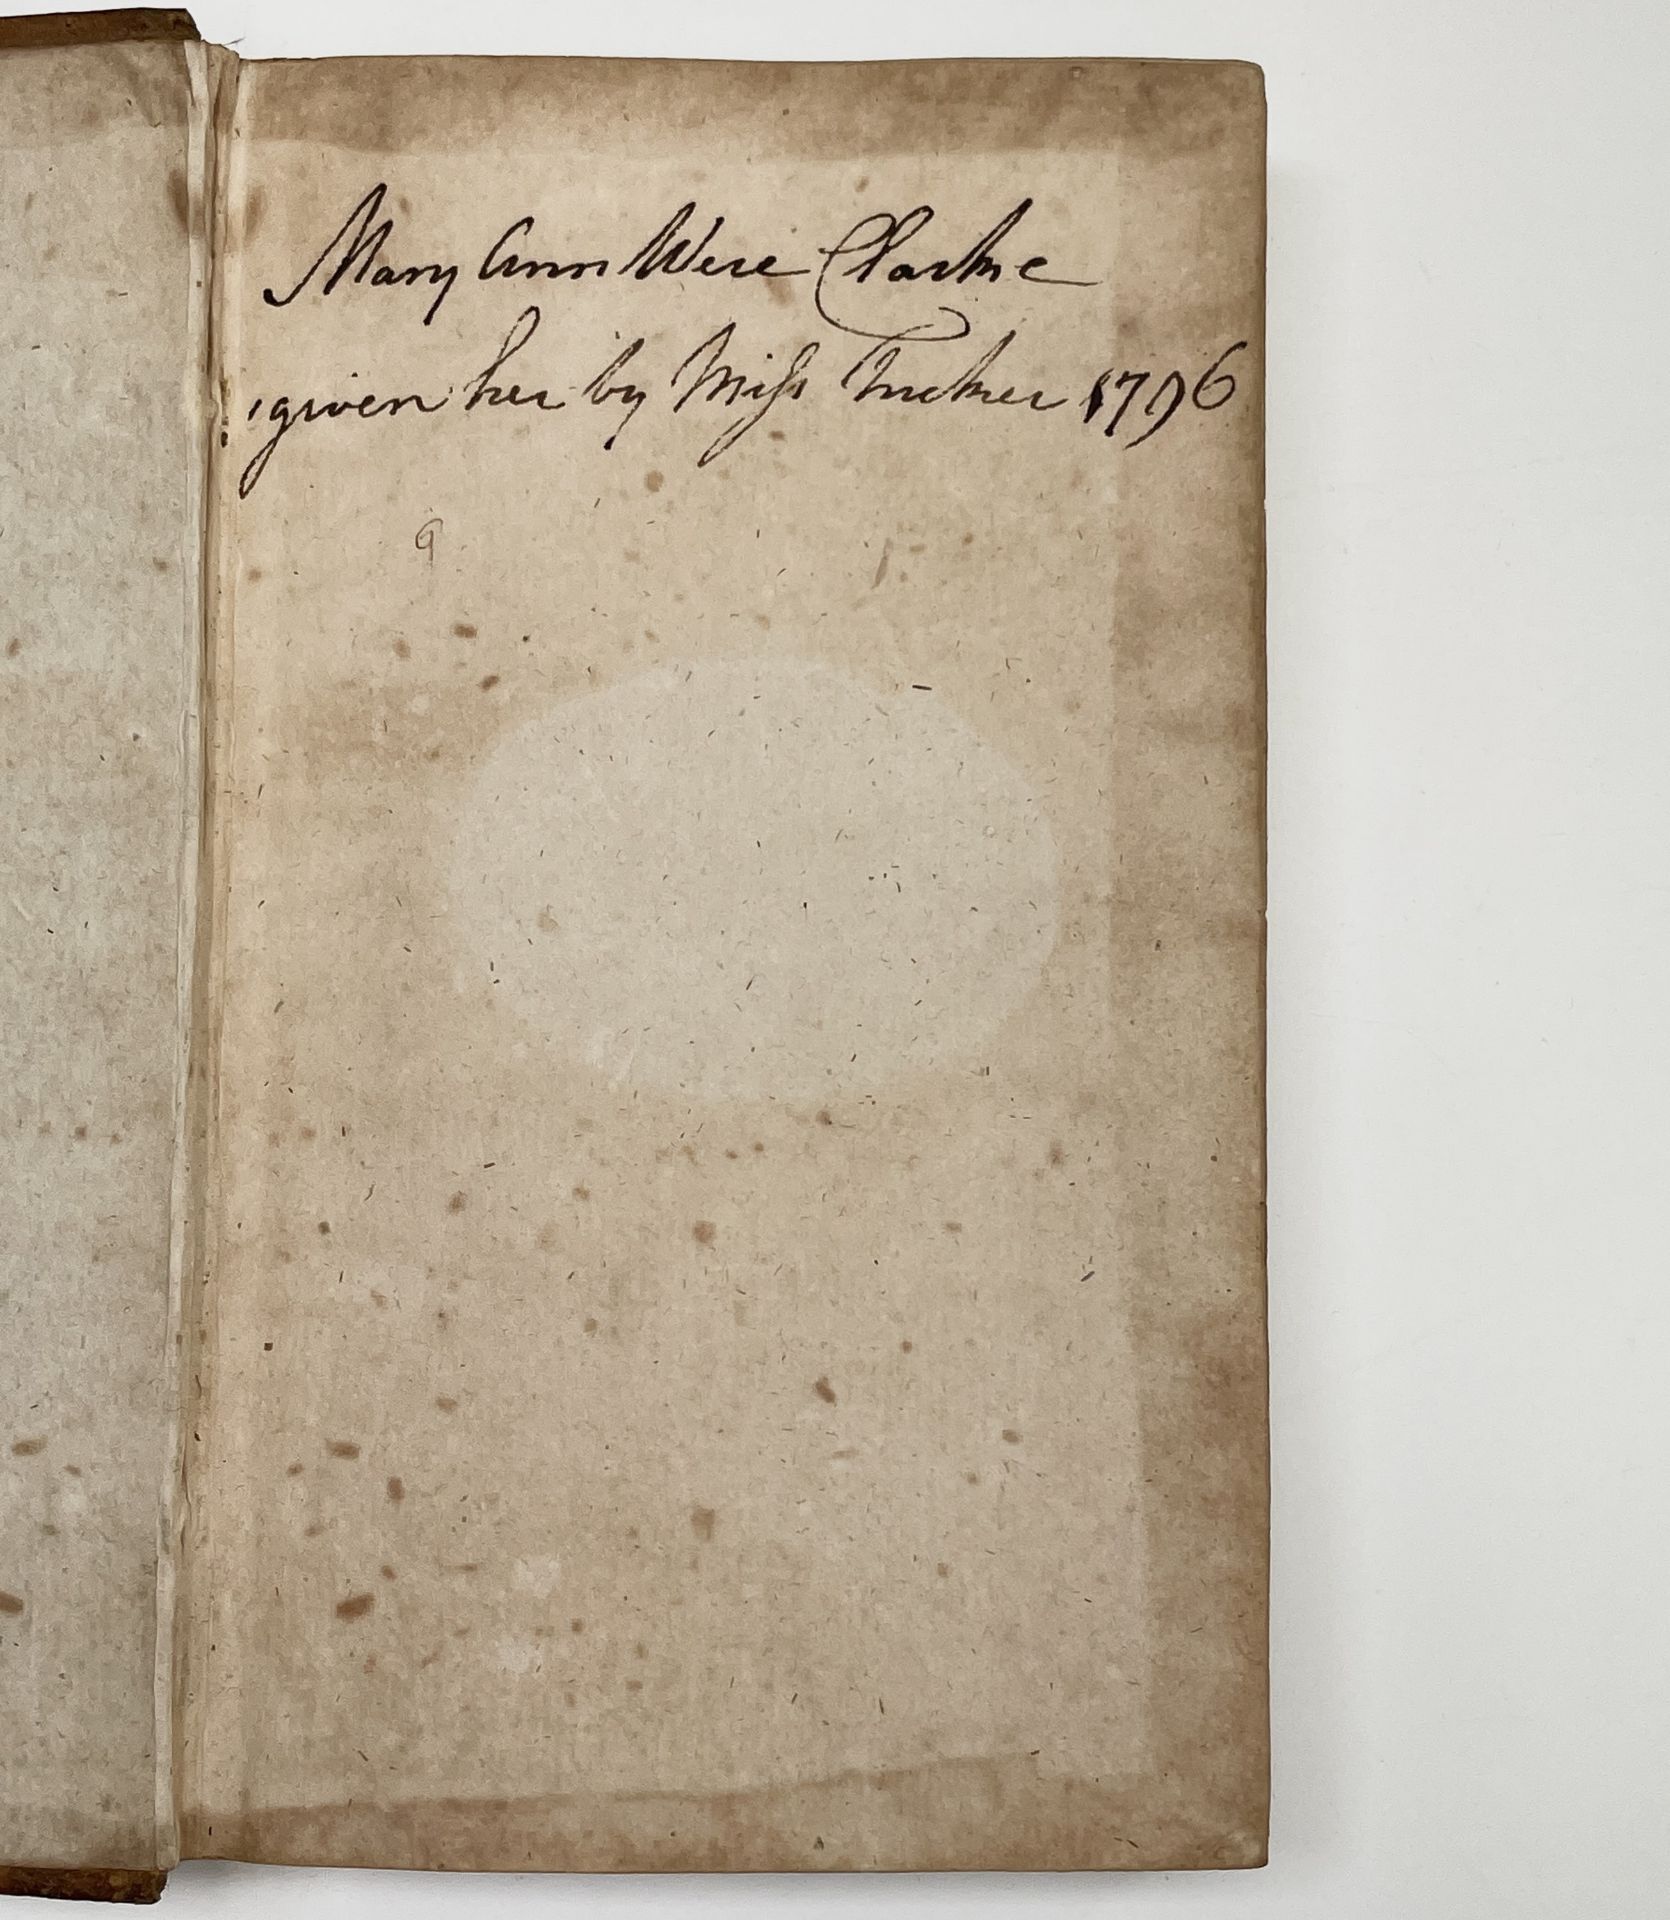 Mary Ann Were Clarke
given her by Miſs Tucker 1796
9